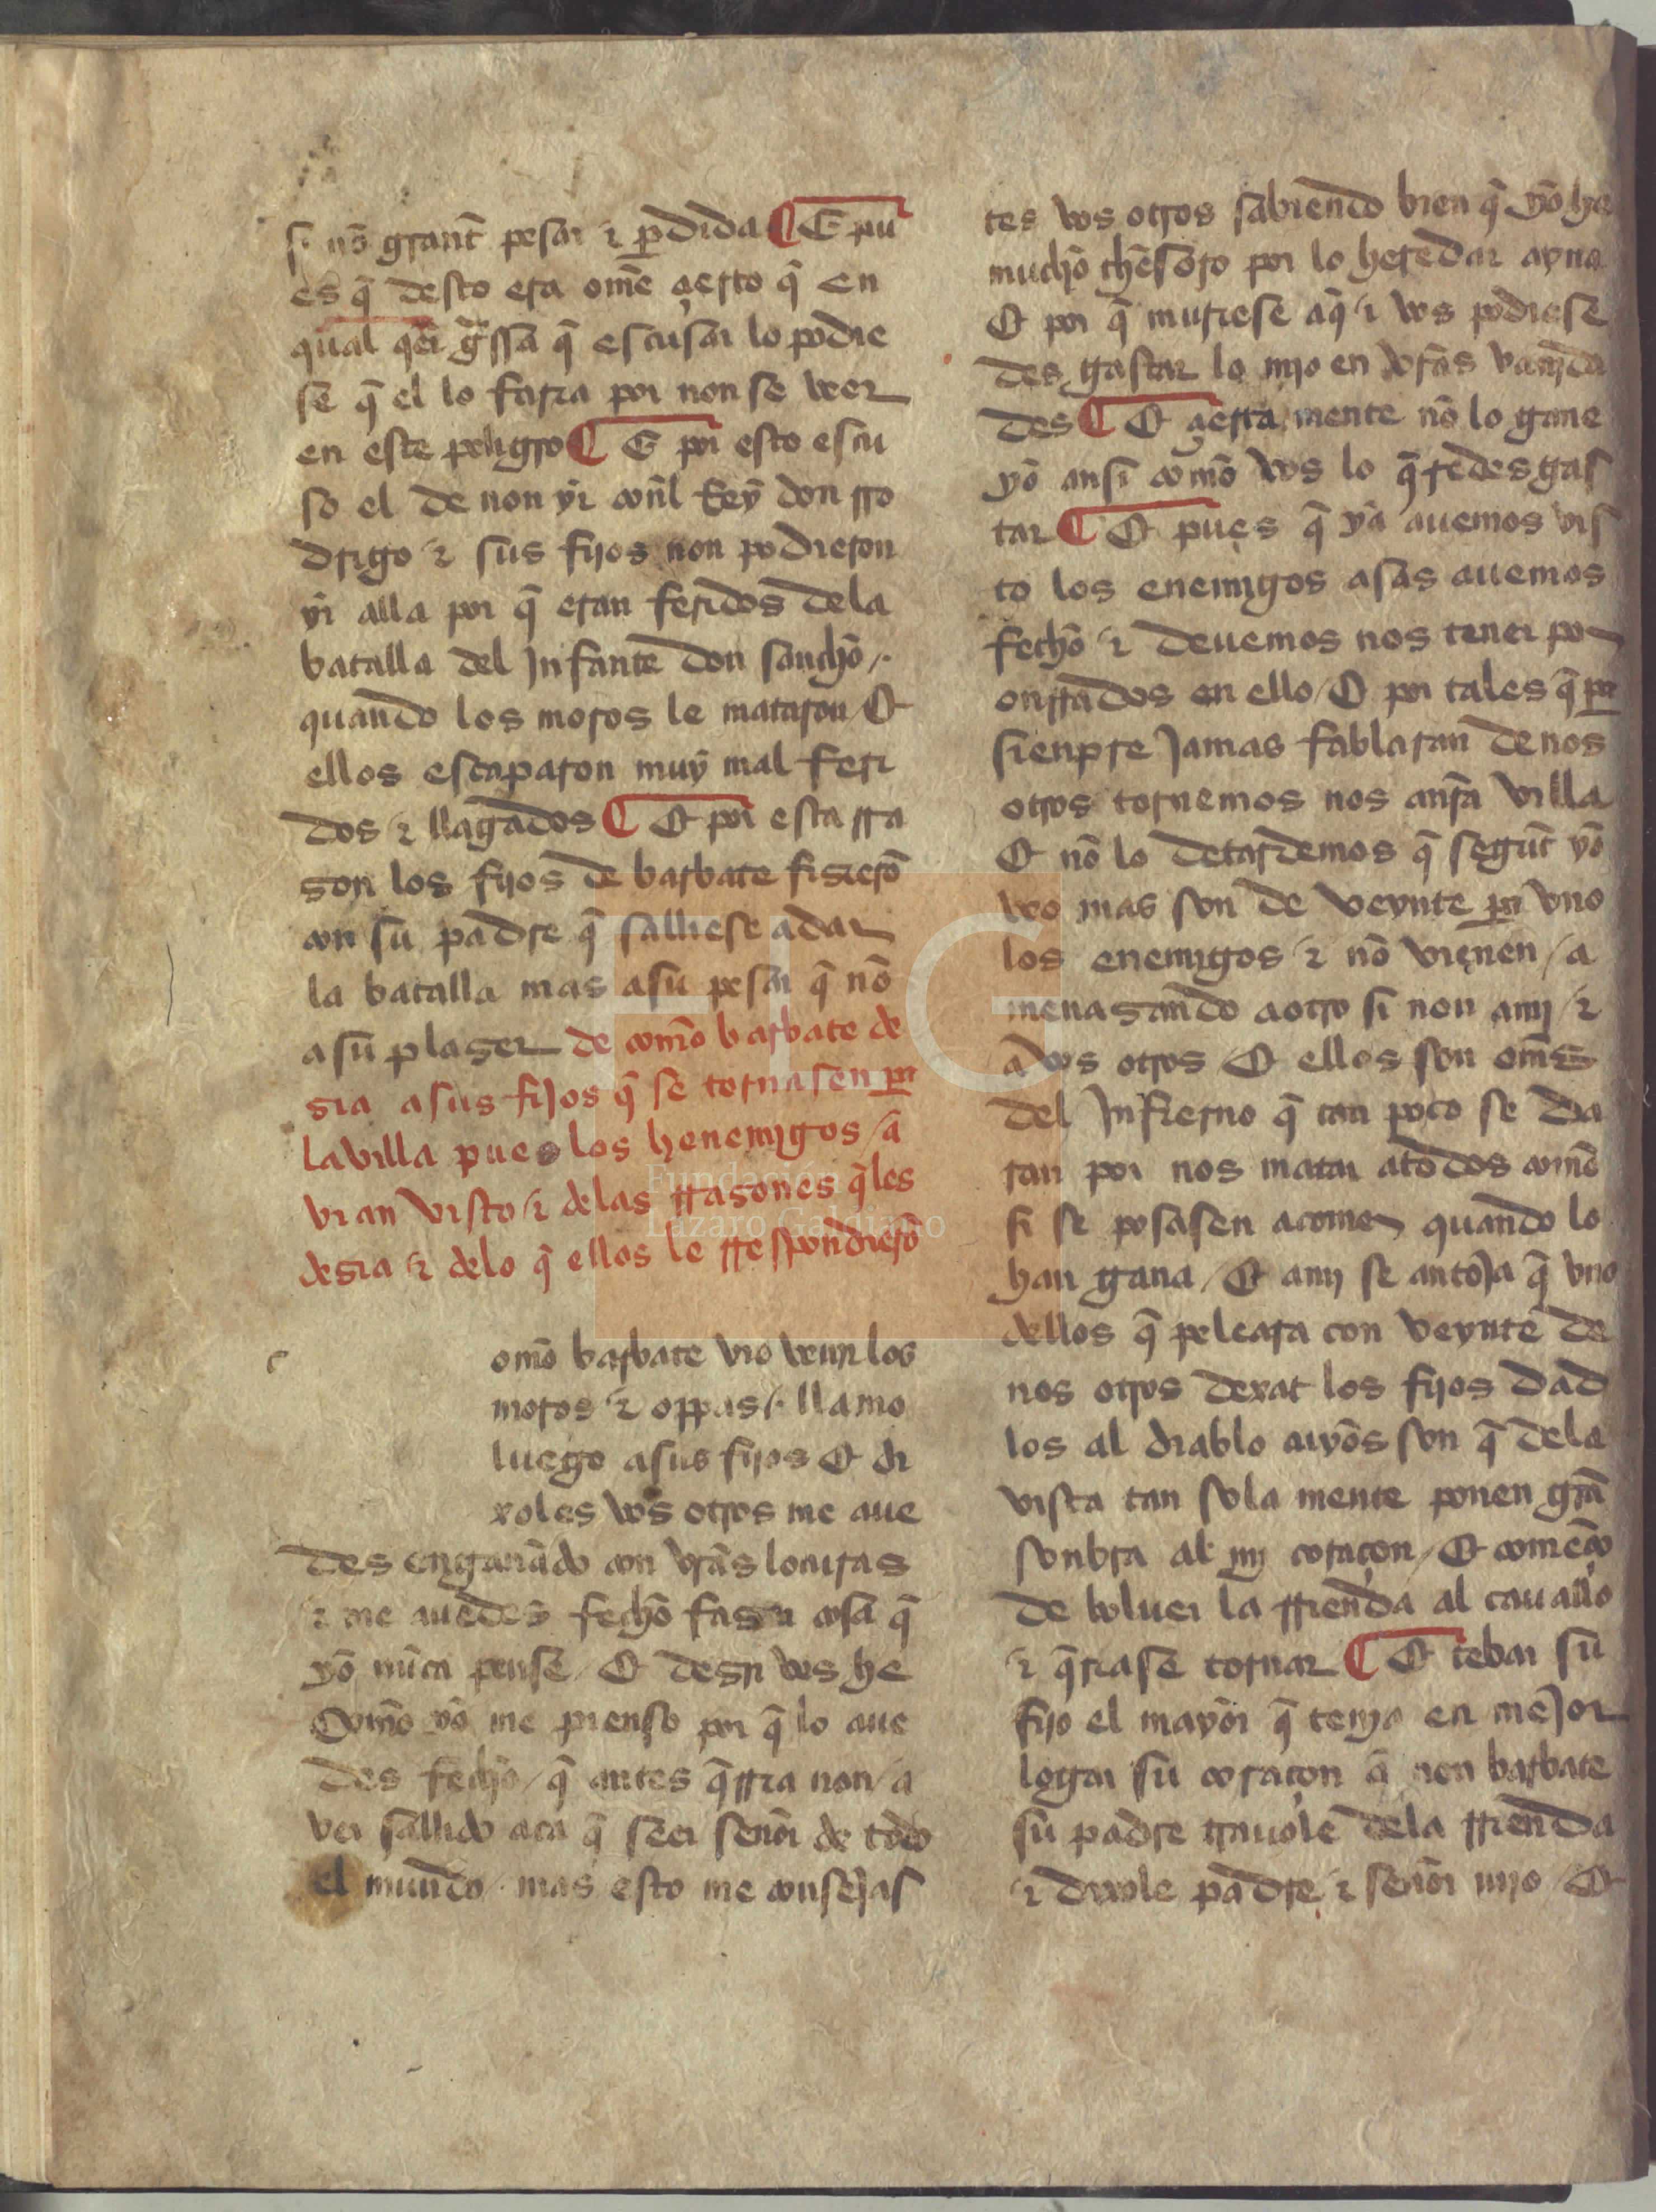 si nõ grant̃ pesar ⁊ ꝑdida ¶ E pu
es q̃ desto era omẽ çierto q̃ en
qual q̃er g̃ssa q̃ escusar lo podie
se q̃ el lo faria por non se veer
en este peligro ¶ E por esto escu
so el de non yr con̄l Rey don rro
drigo ⁊ sus fijos non podieron
yr alla por q̃ eran feridos dela
batalla del Jnfante don sancho /.
quando los moros le mataron / Et
ellos escaparon muy mal feri
dos ⁊ llagados ¶ Et por esta rra
son los fijos de barbate fisierõ
con su padre q̃ salliese a dar
la batalla mas asu pesar q̃ nõ
asu plaser de commo barbate de
sia asus fijos q̃ se tornasen ꝑa
la villa pues los henemigos / a
vian visto / ⁊ delas rrasones q̃les
desia ⁊ delo q̃ ellos le rrespondierõ
c
omõ barbate vio venir los
moros ⁊ oppas /. llamo
luego asus fijos Et di
xoles vos otros me aue
des enganãdo con vr̃as locuras
⁊ me auedes fecho faser cosa q̃
yo nũca pense / Et desir vos he
Commo yo me pienso por q̃ lo aue
des fecho / q̃ antes q̃rria non / a
ver sallido aca q̃ seer senor de todo
el mundo / mas esto me consejas
tes vos otros sabiendo bien q̃ yo he
mucho thesoro por lo heredar ayna
Et por q̃ muriese aq̃ ⁊ vos podiese
des gastar lo mio en vr̃as vanida
des ¶ Et çierta mente nõ lo gane
yo ansi commo vos lo q̃redes gas
tar ¶ Et pues q̃ ya auemos vis
to los enemigos asas auemos
fecho ⁊ deuemos nos tener por
onrrados en ello / Et por tales q̃ ꝑa
sienpre Jamas fablaran de nos
otros tornemos nos anr̃a villa
Et nõ lo detardemos q̃ segunt̃ yo
veo mas son de veynte ꝑa vno
los enemigos ⁊ nõ vienen / a
menasando a otro si non amj / ⁊
a vos otros Et ellos son omẽs
del Jnfierno q̃ tan poco se da
ran por nos matar a todos commo
si se posasen a comer quando lo
han gana / Et amj se antoja q̃ vno
dellos q̃ peleara con veynte de
nos otros dexat los fijos dad
los al diablo cuyos son q̃ dela
vista tan sola mente ponen gr̃a
sonbra al mj coraçon / Et comẽço
de boluer la rrienda al cauallo
⁊ q̃riase tornar ¶ Et tebar su
fijo el mayor q̃ tenja en meJor
logar su coraçon q̃ non barbate
su padre trauole dela rrienda
⁊ dixole padre ⁊ senor mjo / Et
FLG
Fundación
Lázaro Galdiano